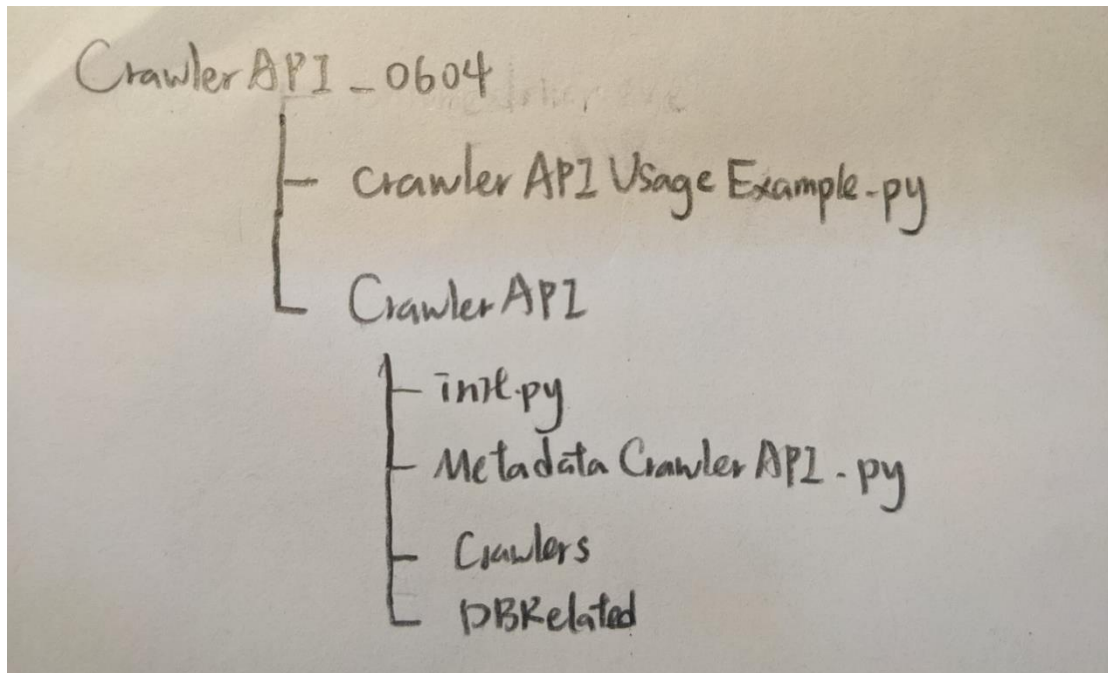 CrawlerAPI_0604
crawlerAPIUsageExample.py
CrawlerAPI
init.py
MetadataCrawlerAPI.py
Crawlers
DBRelated